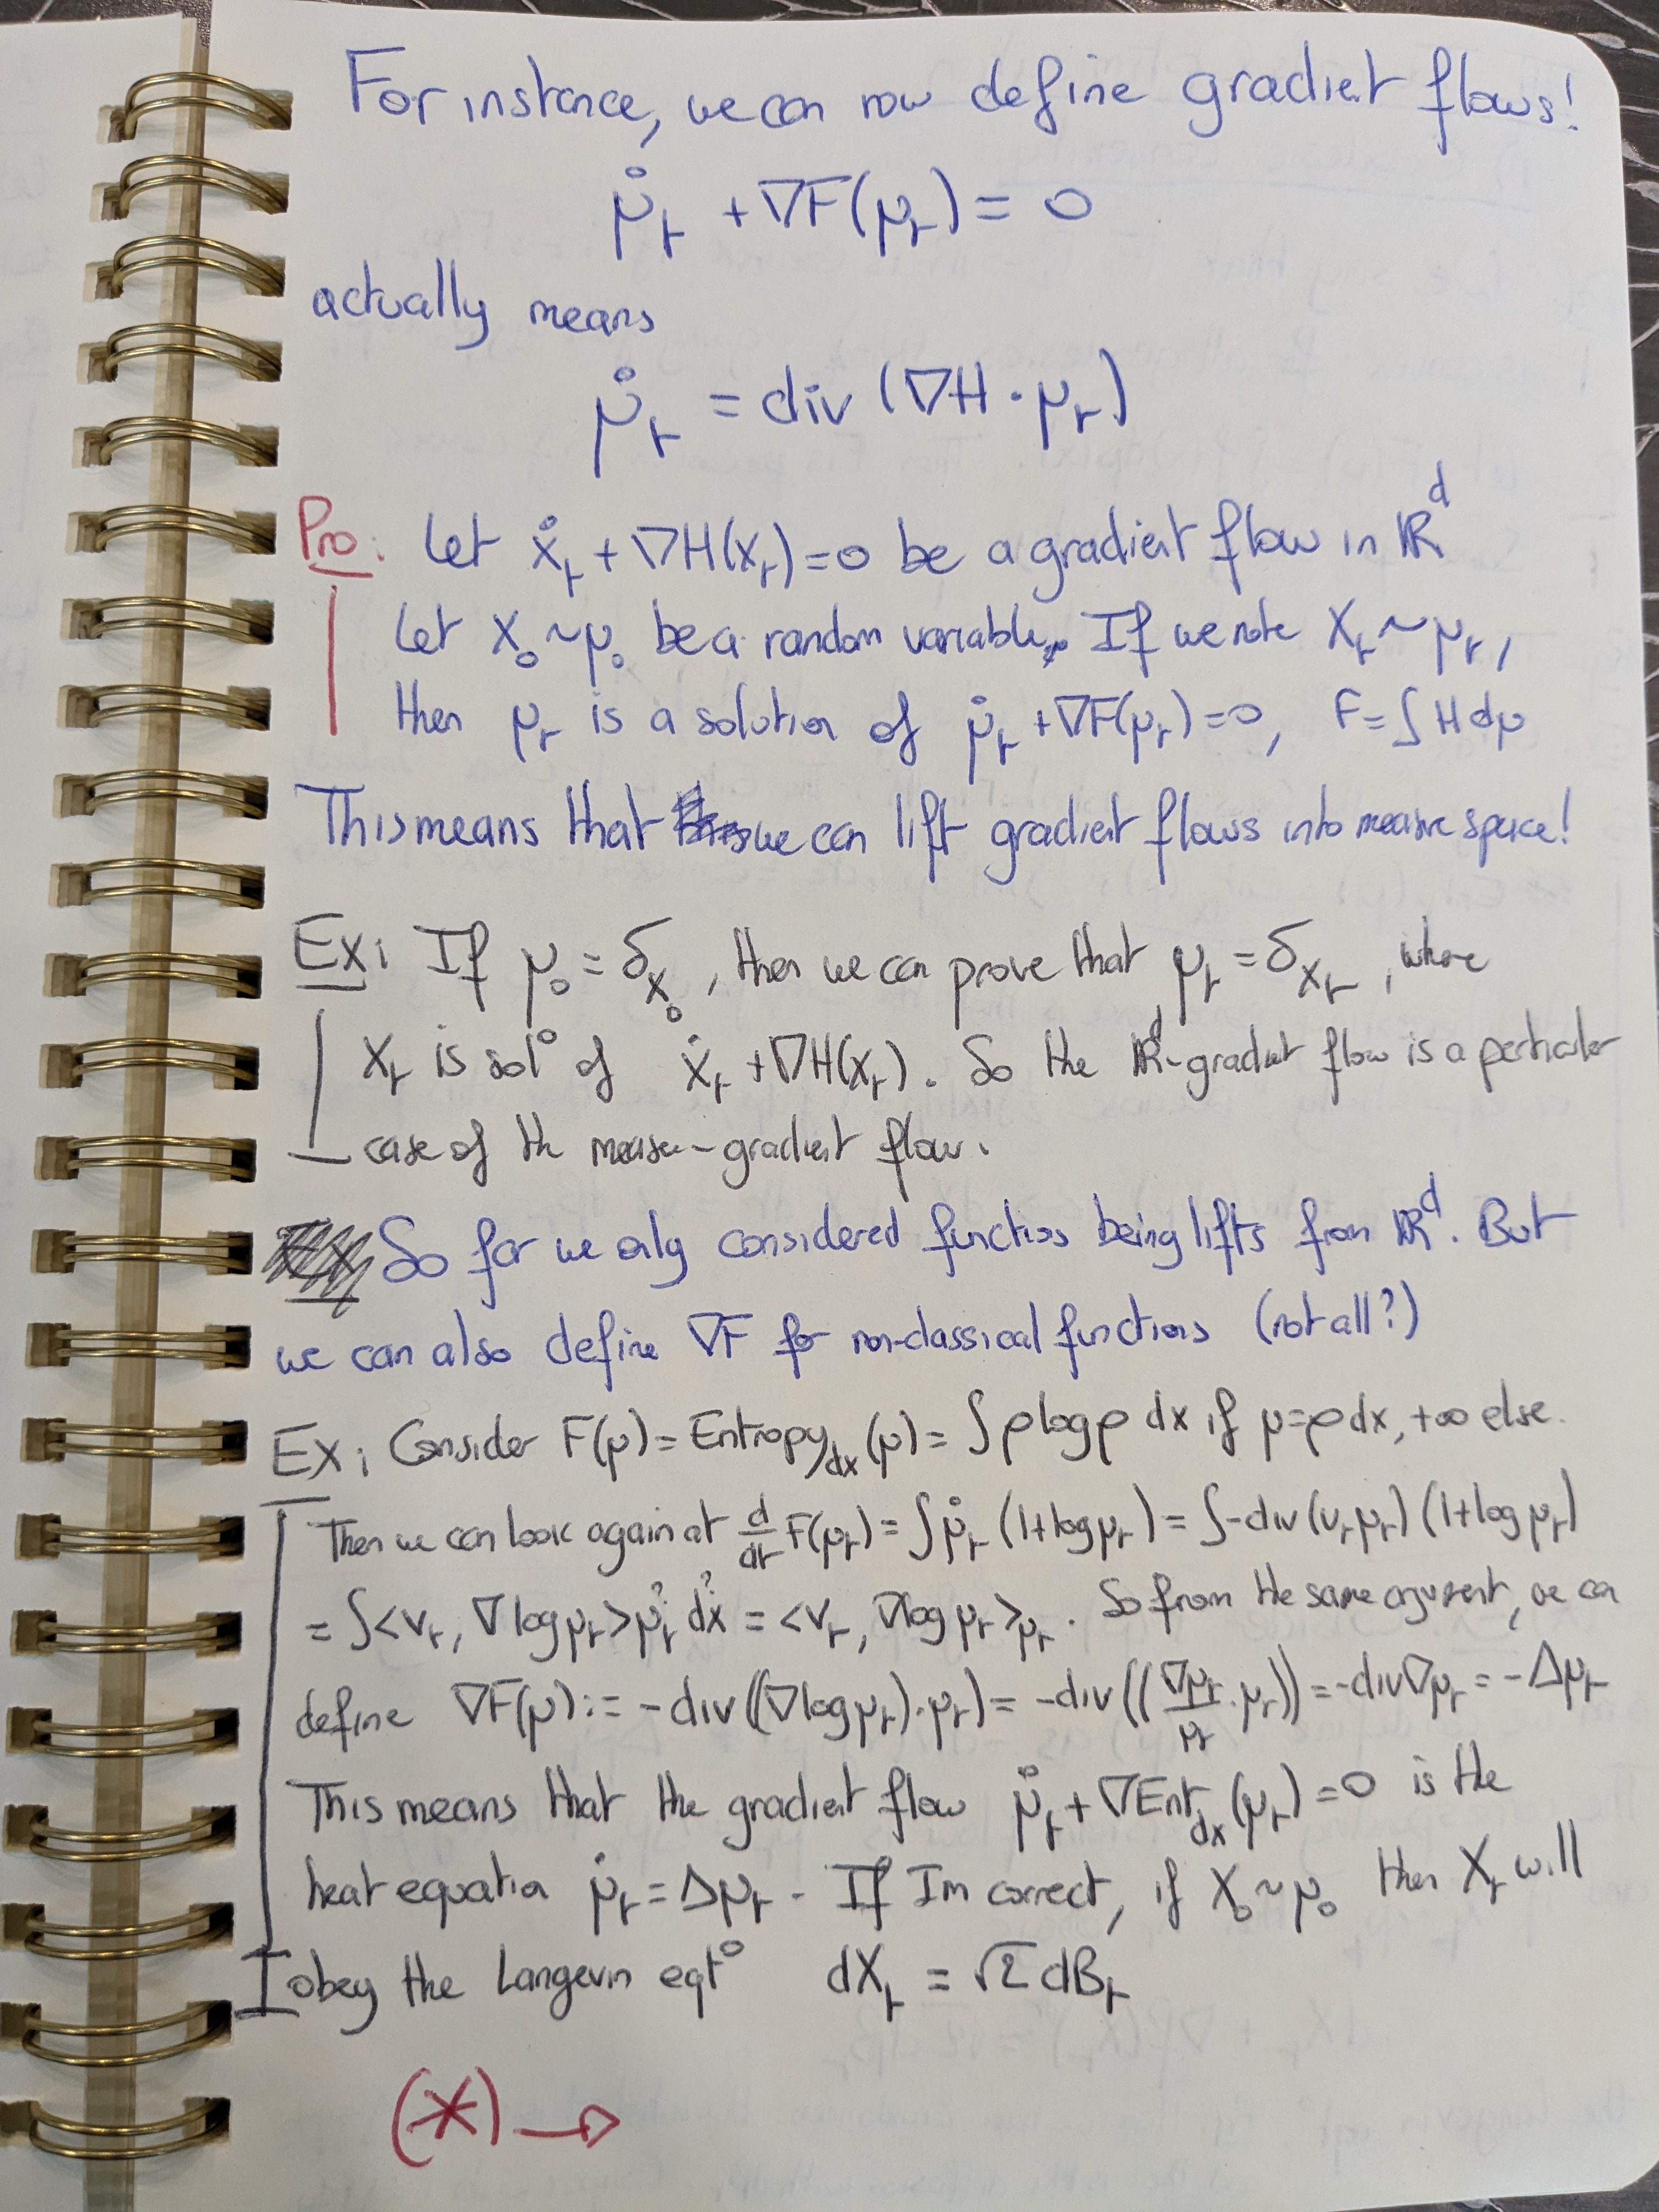 For instance, we can now define gradient flows!
μ̇ₜ + ∇F(μₜ) = 0
actually means
μ̇ₜ = div (∇H · μₜ)
Pro: Let ẋₜ + ∇H(xₜ) = 0 be a gradient flow in ℝᵈ
Let X₀ ~ μ₀ be a random variable. If we note Xₜ ~ μₜ,
then μₜ is a solution of μ̇ₜ + ∇F(μₜ) = 0, F = ∫ H dμ
This means that we can lift gradient flows into measure space!
Ex: If μ₀ = δ_x₀, then we can prove that μₜ = δ_xₜ, where
xₜ is sol° of ẋₜ + ∇H(xₜ). So the ℝᵈ-gradient flow is a particular
case of the measure-gradient flow.
So far we only considered functions being lifts from ℝᵈ. But
we can also define ∇F for non-classical functions (not all?)
Ex: Consider F(μ) = Entropy_dx(μ) = ∫ρ log ρ dx if μ=ρ dx, +∞ else.
Then we can look again at d/dt F(μₜ) = ∫ μ̇ₜ (1+log μₜ) = ∫ -div(vₜ μₜ) (1+log μₜ)
= ∫<vₜ, ∇ log μₜ> μₜ? dx? = <vₜ, ∇log μₜ>_μₜ. So from the same argument, we can
define ∇F(μ) := -div((∇log μₜ)·μₜ) = -div((∇μₜ/μₜ · μₜ)) = -div∇μₜ = -Δμₜ
This means that the gradient flow μ̇ₜ + ∇Ent_dx(μₜ) = 0 is the
heat equation μ̇ₜ = Δμₜ. If I'm correct, if X₀ ~ μ₀ then Xₜ will
obey the Langevin eqt° dXₜ = √2 dBₜ
(*) →